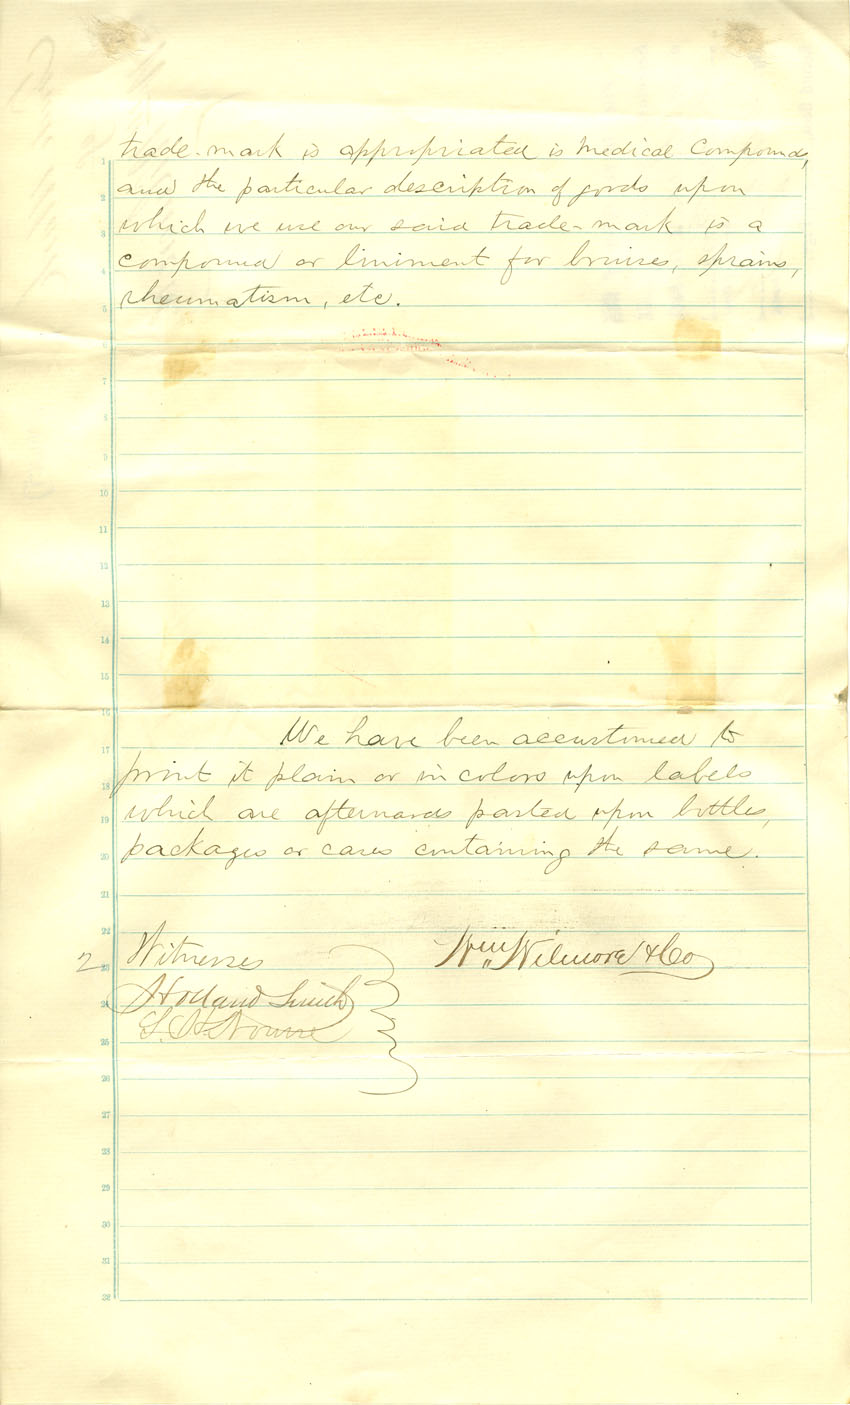 trade-mark is appropriated is Medical Compounds,
and the particular description of goods upon
which we use our said trade-mark is a
compound or liniment for bruises, sprains,
rheumatism, etc.
We have been accustomed to
print it plain or in colors upon labels
which are afterwards pasted upon bottles,
packages or cases containing the same.
2 Witnesses
Wm Wilmore & Co
Holland Smith
1
2
3
4
5
6
7
8
9
10
11
12
13
14
15
16
17
18
19
20
21
22
23
24
25
26
27
28
29
30
31
32